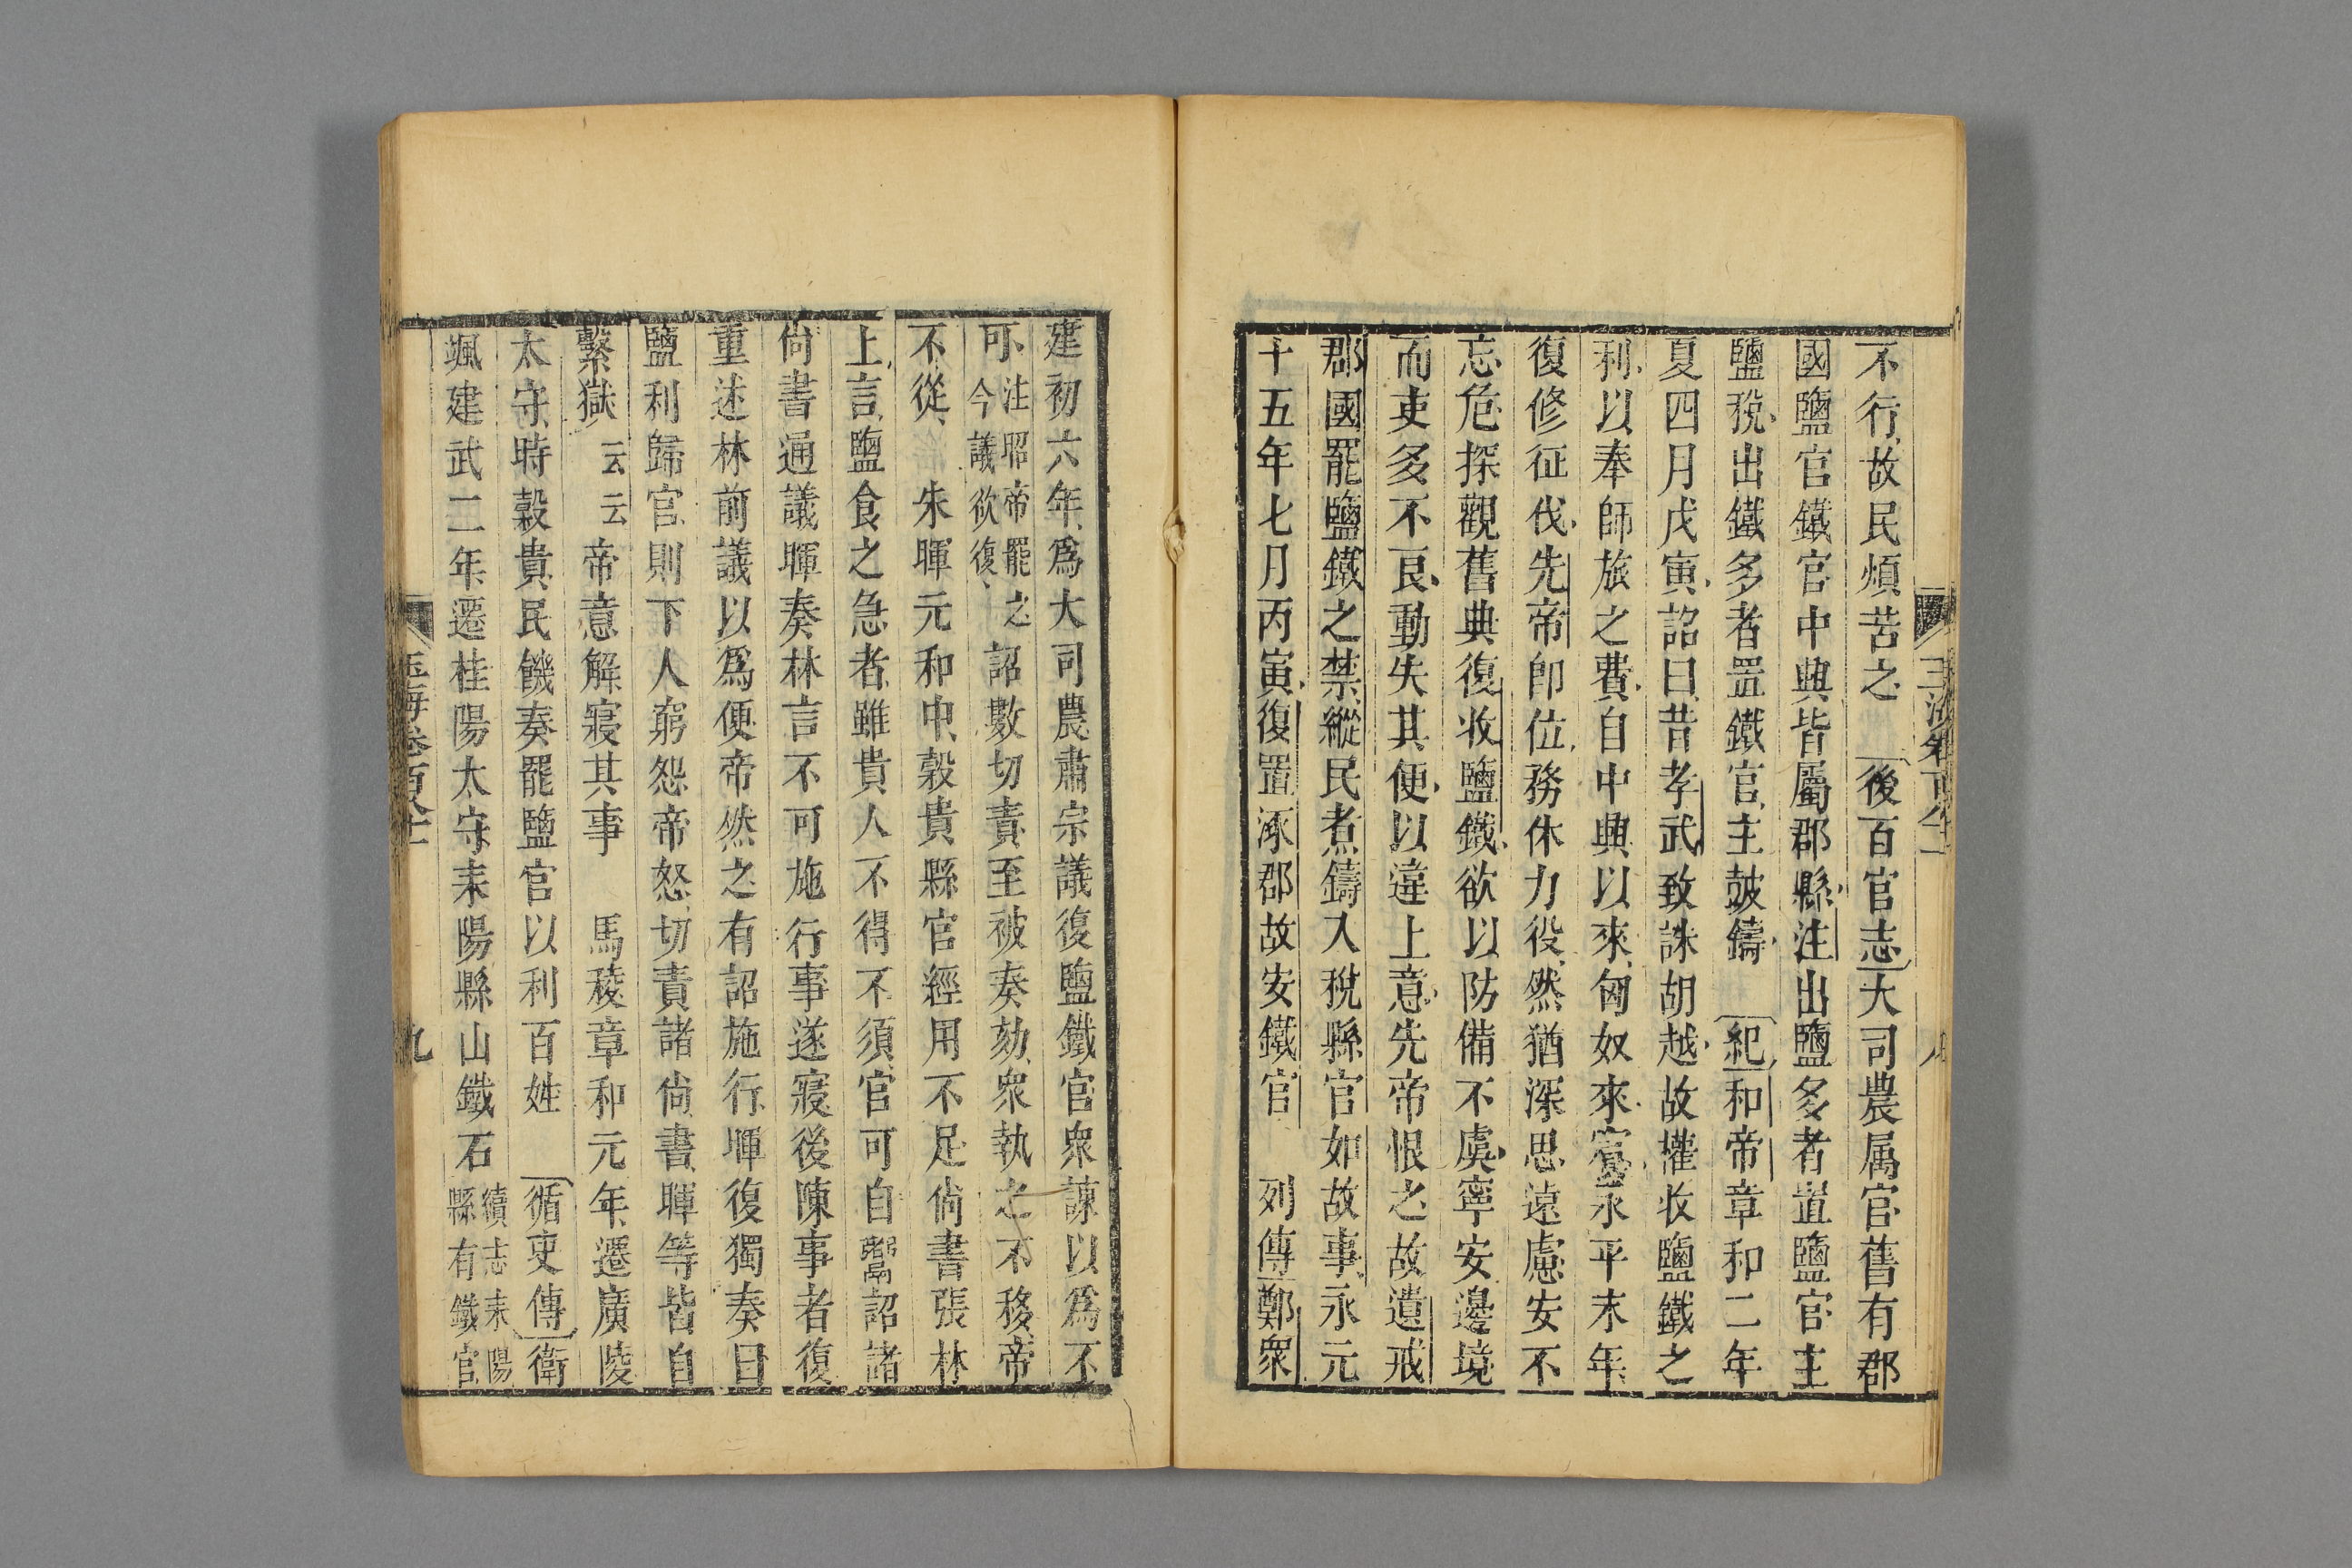 不行故民煩苦之　後百官志大司農属官舊有郡
國鹽官鐵官中興皆屬郡縣注出鹽多者置鹽官主
鹽稅出鐵多者置鐵官主鼓鑄　紀和帝章和二年
夏四月戊寅詔曰昔孝武致誅胡越故權收鹽鐵之
利以奉師旅之費自中興以來匈奴來賓永平末年
復修征伐先帝即位務休力役然猶深思遠慮安不
忘危探觀舊典復收鹽鐵欲以防備不虞寧安邊境
而吏多不良動失其便以違上意先帝恨之故遺戒
郡國罷鹽鐵之禁縱民煮鑄入稅縣官如故事永元
十五年七月丙寅復置涿郡故安鐵官　列傳鄭衆
建初六年為大司農肅宗議復鹽鐵官衆諫以為不
可注昭帝罷之今議欲復詔數切責至被奏劾衆執之不移帝
不從　朱暉元和中穀貴縣官經用不足尚書張林
上言鹽食之急者雖貴人不得不須官可自鬻詔諸
尚書通議暉奏林言不可施行事遂寢後陳事者復
重述林前議以為便帝然之有詔施行暉復獨奏曰
鹽利歸官則下人窮怨帝怒切責諸尚書暉等皆自
繫獄云云帝意解寢其事　馬稜章和元年遷廣陵
太守時穀貴民饑奏罷鹽官以利百姓　循吏傳衛
颯建武二年遷桂陽太守耒陽縣山鐵石續志耒陽縣有鐵官
玉海卷百八十一
九